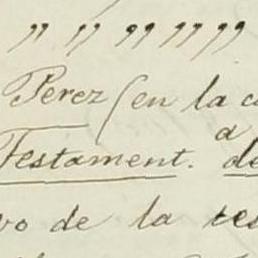 " " " " "
Perez (en la
a
Testament. de
vo de la tes